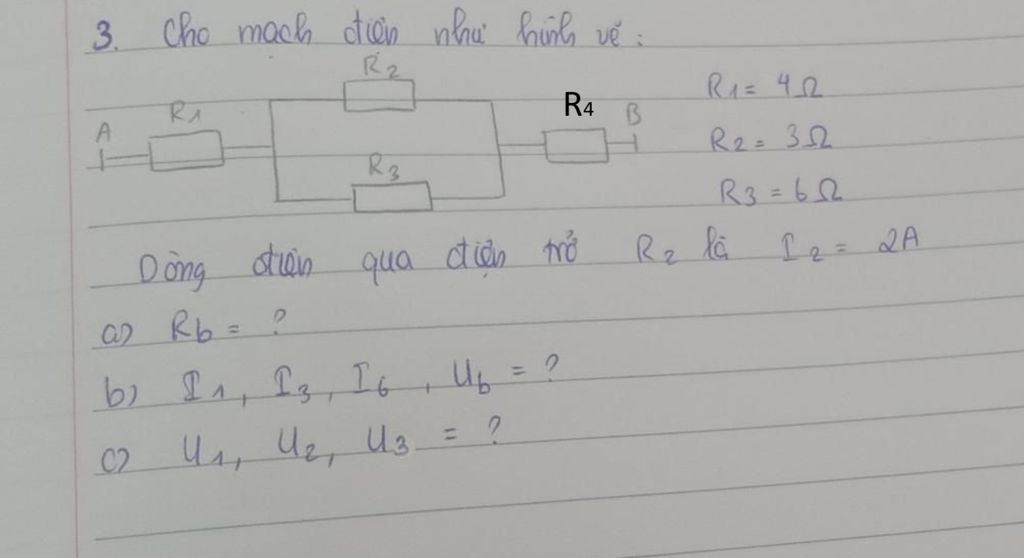 3. Cho mạch điện như hình vẽ:
R2
R1= 4Ω
R1
R4
A
B
R2= 3Ω
R3
R3 = 6Ω
Dòng điện qua điện trở R2 là I2= 2A
a) Rb= ?
b) I1, I3, I6, Ub = ?
c) U1, U2, U3 = ?